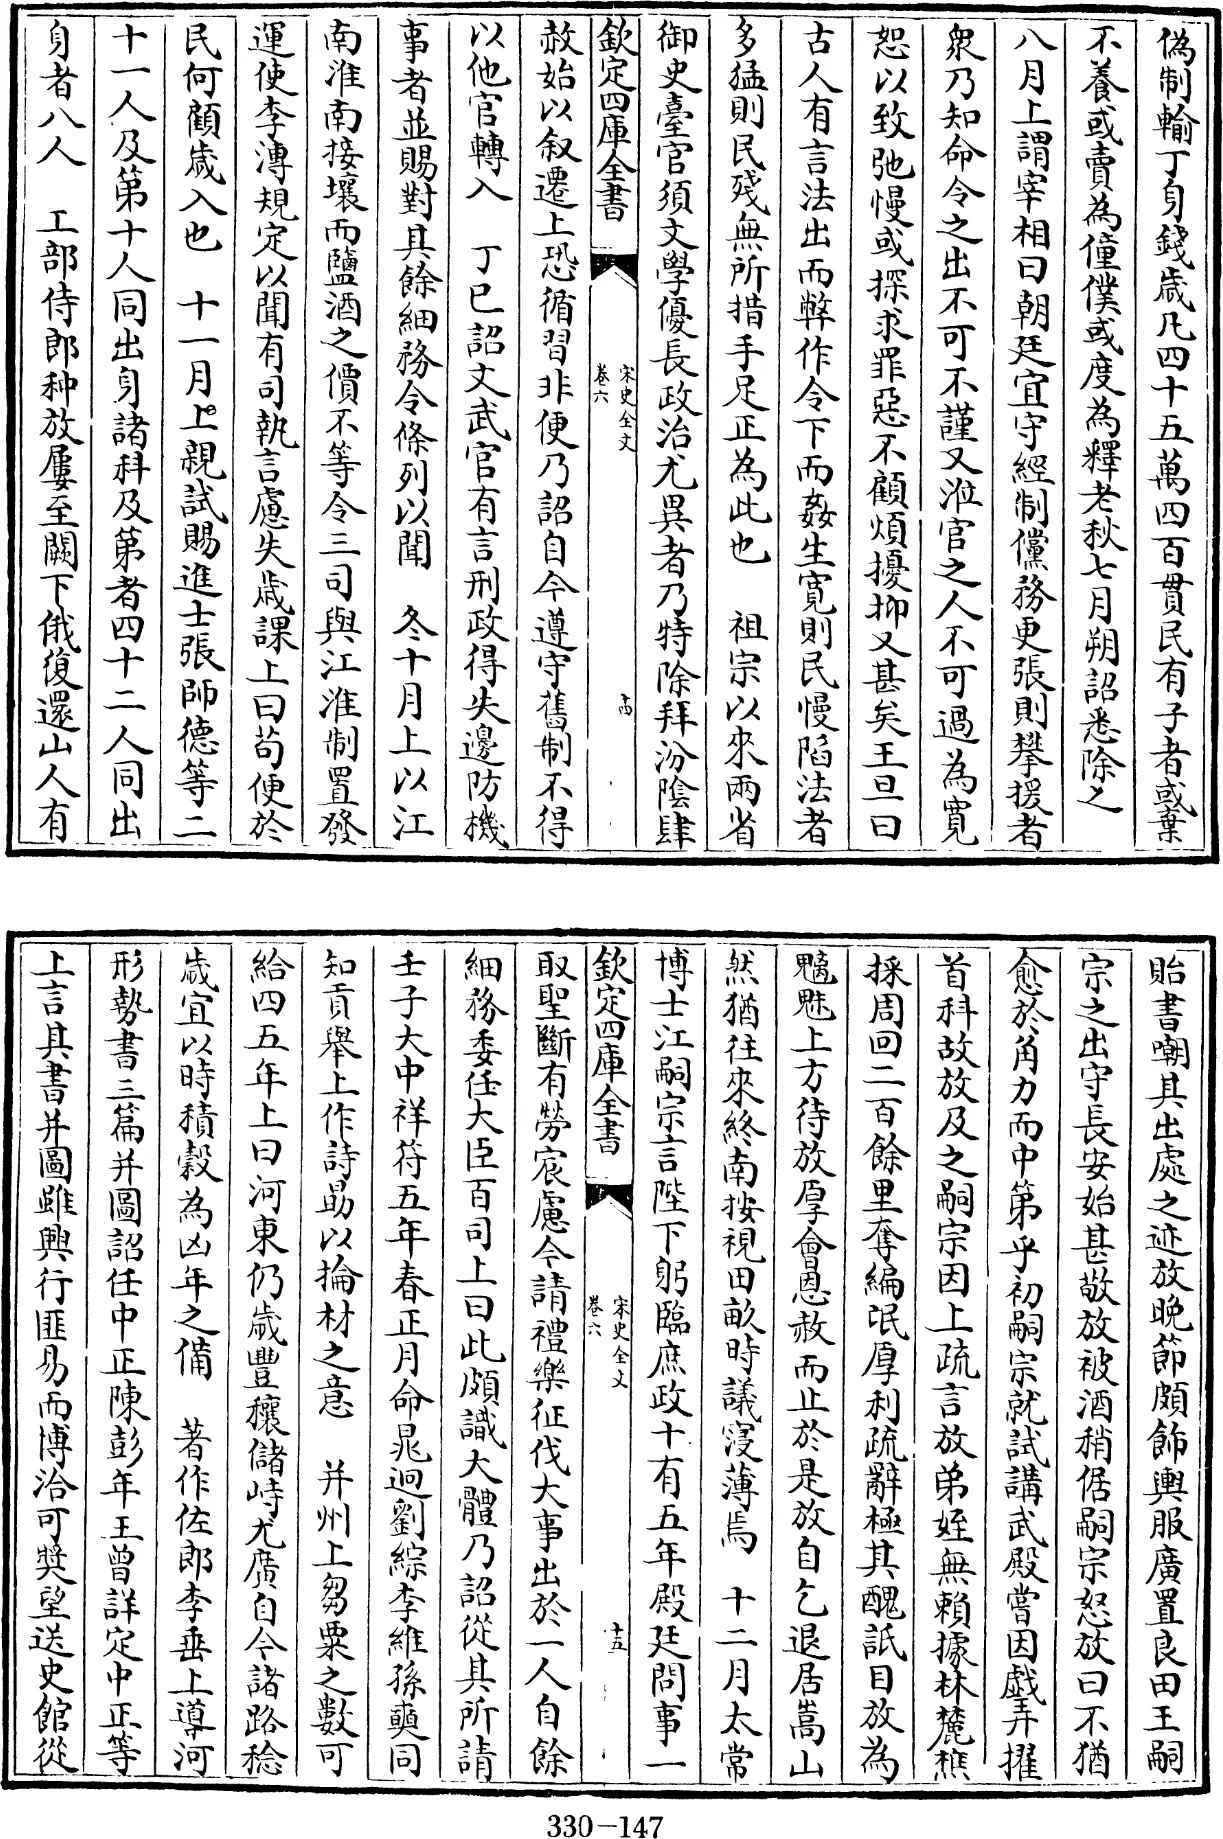 偽制輸丁身錢歲凡四十五萬四百貫民有子者或棄
不養或賣為僮僕或度為釋老秋七月朔詔悉除之
八月上謂宰相曰朝廷宜守經制儻務更張則攀援者
衆乃知命令之出不可不謹又涖官之人不可過為寛
恕以致弛慢或探求罪惡不顧煩擾抑又甚矣王旦曰
古人有言法出而弊作令下而姦生寛則民慢陷法者
多猛則民殘無所措手足正為此也　祖宗以來兩省
御史臺官須文學優長政治尤異者乃特除拜汾陰肆
欽定四庫全書
宋史全文
卷六
十四
赦始以叙遷上恐循習非便乃詔自今遵守舊制不得
以他官轉入　丁巳詔文武官有言刑政得失邊防機
事者並賜對其餘細務令條列以聞　冬十月上以江
南淮南接壤而鹽酒之價不等令三司與江淮制置發
運使李溥規定以聞有司執言慮失歲課上曰苟便於
民何顧歲入也　十一月上親試賜進士張師德等二
十一人及第十人同出身諸科及第者四十二人同出
身者八人　工部侍郎种放屢至闕下俄復還山人有
貽書嘲其出處之迹放晚節頗飾輿服廣置良田王嗣
宗之出守長安始甚敬放被酒稍倨嗣宗怒放曰不猶
愈於角力而中第乎初嗣宗就試講武殿嘗因戲弄擢
首科故放及之嗣宗因上疏言放弟姪無賴據林麓樵
採周回二百餘里奪編氓厚利疏辭極其醜詆目放為
魑魅上方待放厚會恩赦而止於是放自乞退居嵩山
然猶往來終南按視田畝時議寖薄焉　十二月太常
博士江嗣宗言陛下躬臨庶政十有五年殿廷問事一
欽定四庫全書
宋史全文
卷六
十五
取聖斷有勞宸慮今請禮樂征伐大事出於一人自餘
細務委任大臣百司上曰此頗識大體乃詔從其所請
壬子大中祥符五年春正月命晁迥劉綜李維孫奭同
知貢舉上作詩勗以掄材之意　并州上芻粟之數可
給四五年上曰河東仍歲豐穰儲峙尤廣自今諸路稔
歲宜以時積穀為凶年之備　著作佐郎李垂上導河
形勢書三篇并圖詔任中正陳彭年王曾詳定中正等
上言其書并圖雖興行匪易而博洽可奬望送史館從
330-147